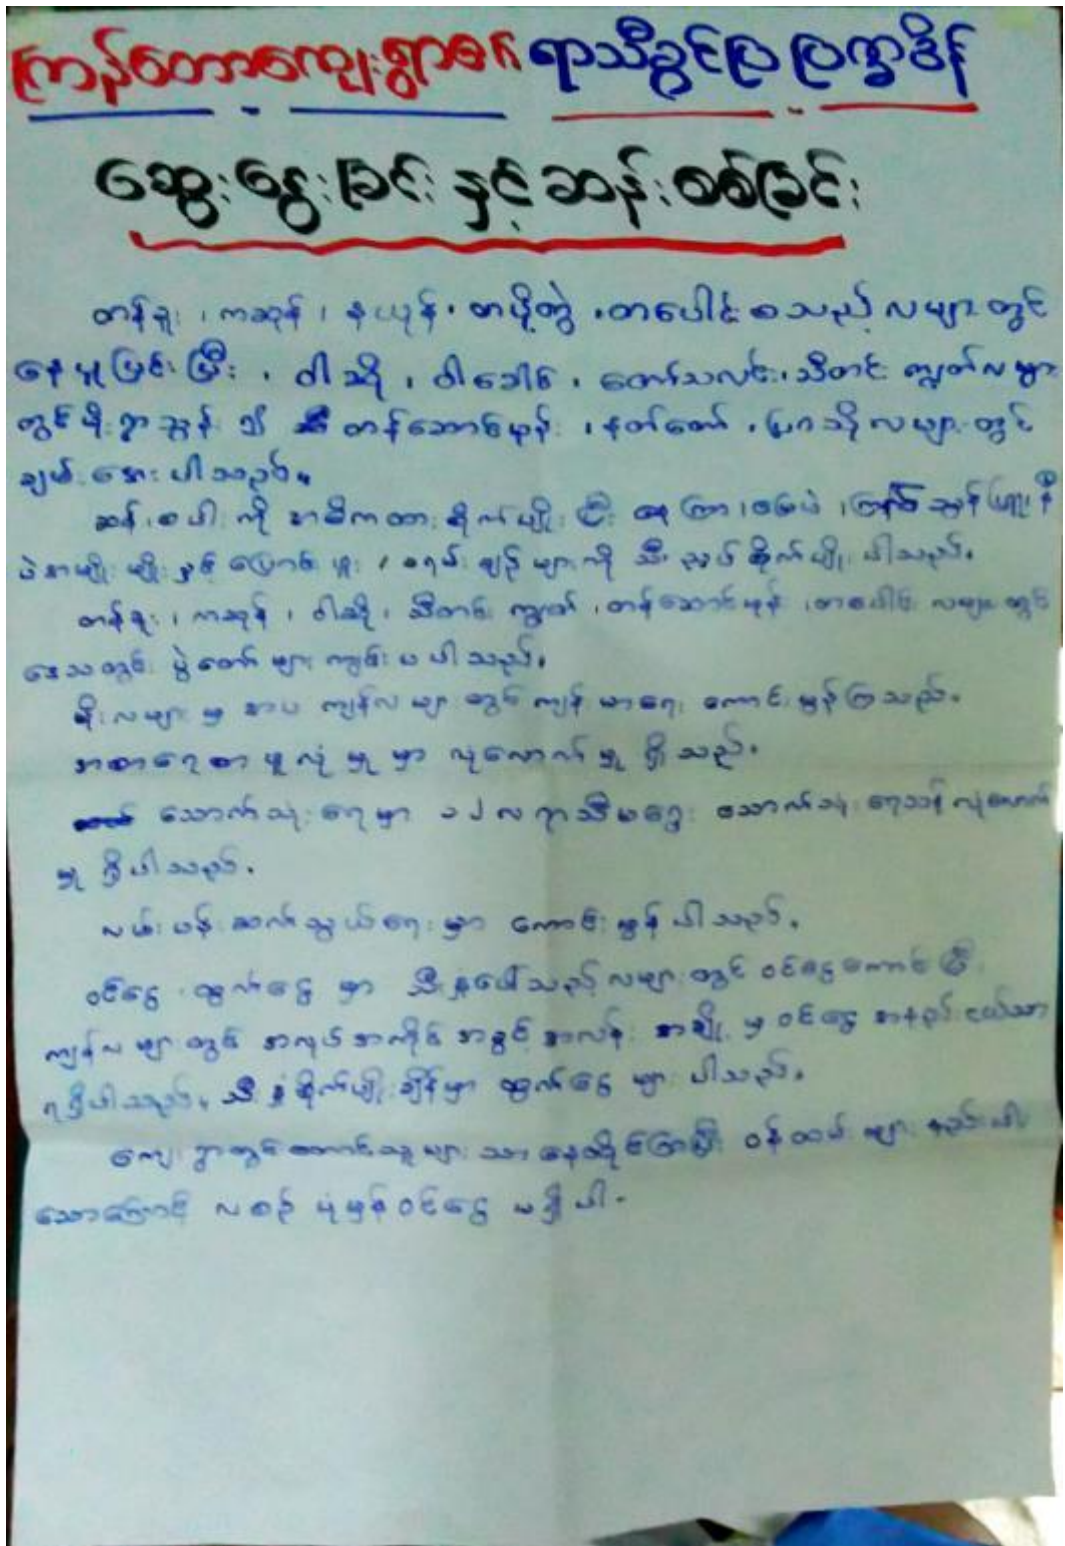 ကြည်တောကျေးရွာ၏ ရာသီခွင်ပြ ပြက္ခဒိန်
ဆွေးနွေးခြင်း နှင့် ဆန်းစစ်ခြင်း
တန်ခူး ၊ ကဆုန် ၊ နယုန် ၊ တပို့တွဲ ၊ တပေါင်း စသည့် လများ တွင်
နေပူပြင်းပြီး ၊ ဝါဆို ၊ ဝါခေါင် ၊ တော်သလင်း ၊ သီတင်းကျွတ်လများ
တွင် မိုးရွာသွန်း ၍ တန်ဆောင်မုန်း ၊ နတ်တော် ၊ ပြာသို လများ တွင်
ချမ်းအေး ပါသည်။
ဆန်၊ စပါး ကို အဓိကထား စိုက်ပျိုးပြီး နှမ်း ကြား၊ မြေပဲ ၊ ကြက်သွန်ဖြူ၊ နီ
ပဲအမျိုးမျိုး နှင့် ပြောင်းဖူး ၊ ခရမ်းချဉ် များကို သီးညှပ် စိုက်ပျိုး ပါသည်။
တန်ခူး ၊ ကဆုန် ၊ ဝါဆို ၊ သီတင်းကျွတ် ၊ တန်ဆောင်မုန်း ၊ တပေါင်း လများ တွင်
ဒေသတွင်း ပွဲတော် များ ကျင်းပ ပါသည်။
မိုးလများ မှ အပ ကျန်လ များ တွင် ကျန်းမာရေး ကောင်းမွန်ကြသည်။
အစားရေစာ ဖူလုံ မှု မှာ လုံလောက် မှု ရှိသည်။
သောက်သုံးရေ မှာ ၁၂ လ ရာသီမရွေး သောက်သုံးရေသန့် လုံလောက်
မှု ရှိပါသည်။
လမ်းပန်းဆက်သွယ်ရေး မှာ ကောင်းမွန် ပါသည်။
ဝင်ငွေ ၊ ထွက်ငွေ မှာ သီးနှံပေါ်သည့် လများ တွင် ဝင်ငွေကောင်းပြီး
ကျန်လ များ တွင် အလုပ်အကိုင် အခွင့်အလမ်း အချို့ မှ ဝင်ငွေ အနည်းငယ်သာ
ရရှိပါသည်။ သီးနှံစိုက်ပျိုးချိန်မှာ ထွက်ငွေ များ ပါသည်။
ကျေးရွာတွင် တောင်သူများ သာ နေထိုင်ကြပြီး ဝန်ထမ်းများ နည်းပါး
သောကြောင့် လစဉ် ပုံမှန် ဝင်ငွေ မရှိပါ။